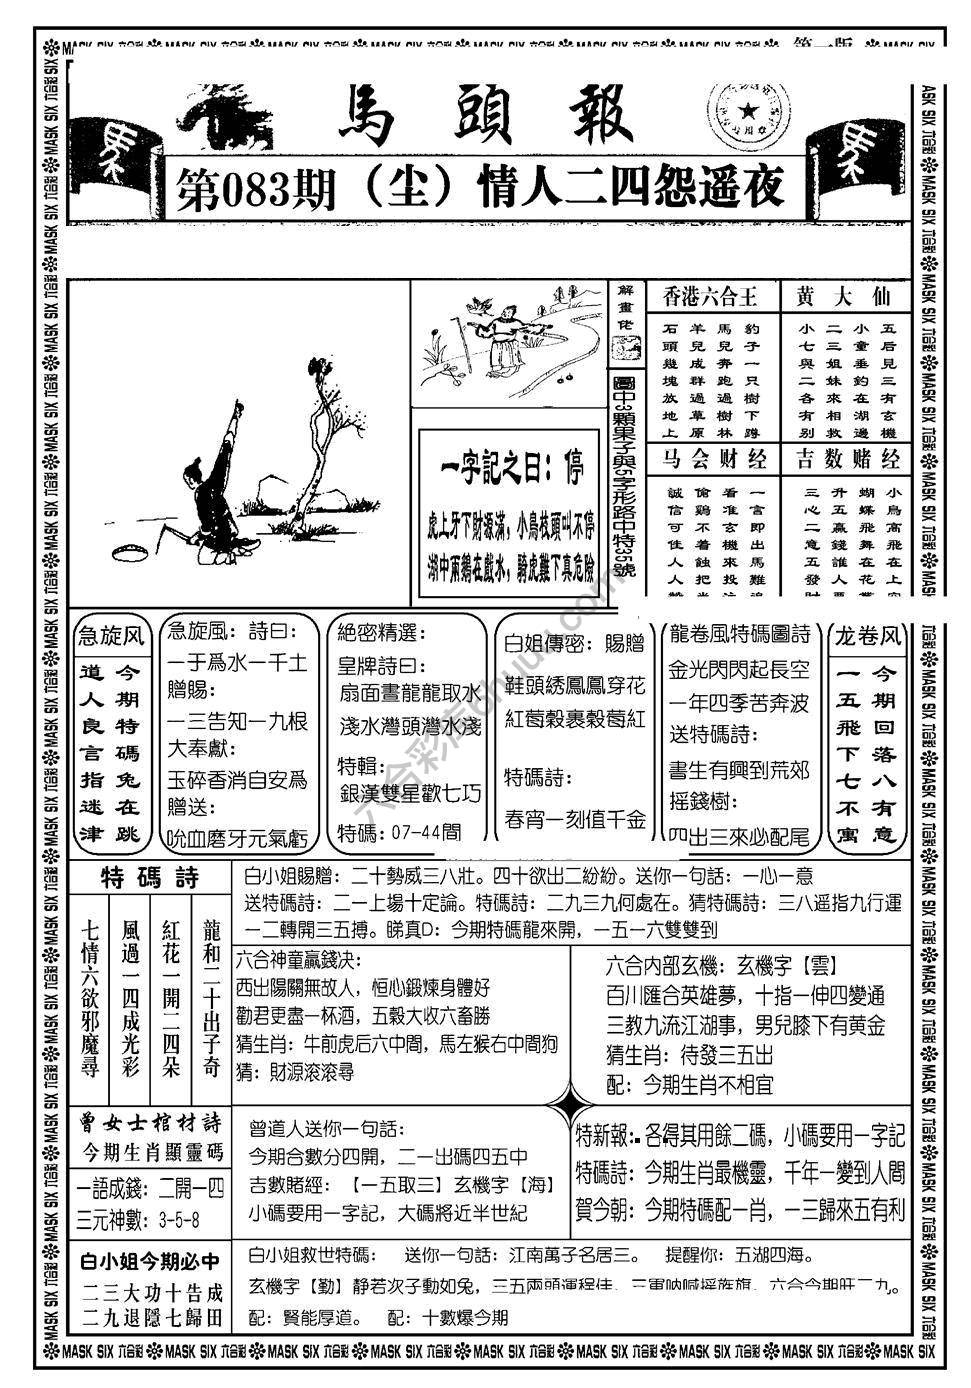 MASK SIX 六合彩
第一版
馬頭報
第083期（尘）情人二四怨遥夜
解畫佬
圖中3顆果子與5字形路中特35號
一字記之日：停
虎上牙下財源滿，小鳥枝頭叫不停
湖中兩鵝在戲水，騎虎難下真危險
香港六合王
豹子一只樹下蹲
馬兒奔跑過樹林
羊兒成群過草原
石頭幾塊放地上
黄大仙
五后見三有玄機
小童垂釣在湖邊
二三姐妹來相救
小七與二各有别
马会财经
一言即出馬難追
看准玄機來投注
偷鷄不着蝕把米
誠信可佳人人贊
吉数赌经
小鳥高飛在上空
蝴蝶飛舞在花叢
升五赢錢誰人
三心二意五發財
急旋风
今期特碼兔在跳
道人良言指迷津
急旋風：詩曰：
一于爲水一千土
贈賜：
一三告知一九根
大奉獻：
玉碎香消自安爲
贈送：
吮血磨牙元氣虧
絕密精選：
皇牌詩曰：
扇面畫龍龍取水
淺水灣頭灣水淺
特輯：
銀漢雙星歡七巧
特碼：07-44間
白姐傳密：賜贈
鞋頭綉鳳鳳穿花
紅莓穀裹穀莓紅
特碼詩：
春宵一刻值千金
龍卷風特碼圖詩
金光閃閃起長空
一年四季苦奔波
送特碼詩：
書生有興到荒郊
摇錢樹：
四出三來必配尾
龙卷风
今期回落八有意
一五飛下七不寓
特碼詩
龍和二十出子奇
紅花一開二四朵
風過一四成光彩
七情六欲邪魔尋
白小姐賜贈：二十勢威三八壯。四十欲出二紛紛。送你一句話：一心一意
送特碼詩：二一上場十定論。特碼詩：二九三九何處在。猜特碼詩：三八遥指九行運
一二轉開三五搏。睇真D：今期特碼龍來開，一5一六雙雙到
六合神童贏錢决：
西出陽關無故人，恒心鍛煉身體好
勸君更盡一杯酒，五穀大收六畜勝
猜生肖：牛前虎后六中間，馬左猴右中間狗
猜：財源滚滚尋
六合内部玄機：玄機字【雲】
百川匯合英雄夢，十指一伸四變通
三教九流江湖事，男兒膝下有黄金
猜生肖：待發三五出
配：今期生肖不相宜
曾女士棺材詩
今期生肖顯靈碼
一語成錢：二開一四
三元神數：3-5-8
曾道人送你一句話：
今期合數分四開，二一出碼四五中
吉數賭經：【一五取三】玄機字【海】
小碼要用一字記，大碼將近半世紀
特新報：各得其用餘二碼，小碼要用一字記
特碼詩：今期生肖最機靈，千年一變到人間
賀今朝：今期特碼配一肖，一三歸來五有利
白小姐今期必中
二三大功十告成
二九退隱七歸田
白小姐救世特碼：　送你一句話：江南萬子名居三。　提醒你：五湖四海。
玄機字【勤】静若次子動如兔，三五兩頭運程佳，三軍呐喊摇族旗，六合今期旺二九。
配：賢能厚道。　配：十數爆今期
六合彩库chuu.com